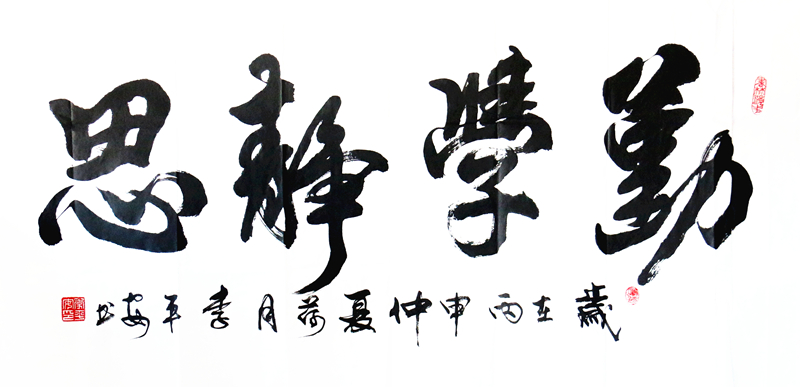 勤學静思
歲在丙申仲夏荷月李平安书